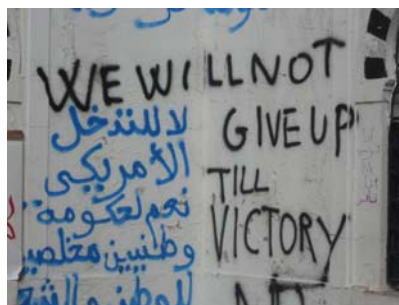 WE WILL NOT
GIVE UP
TILL
VICTORY
لا للتدخل
الأمريكي
نعم لحكومة
وطنيين مخلصين
للوطن والشعب